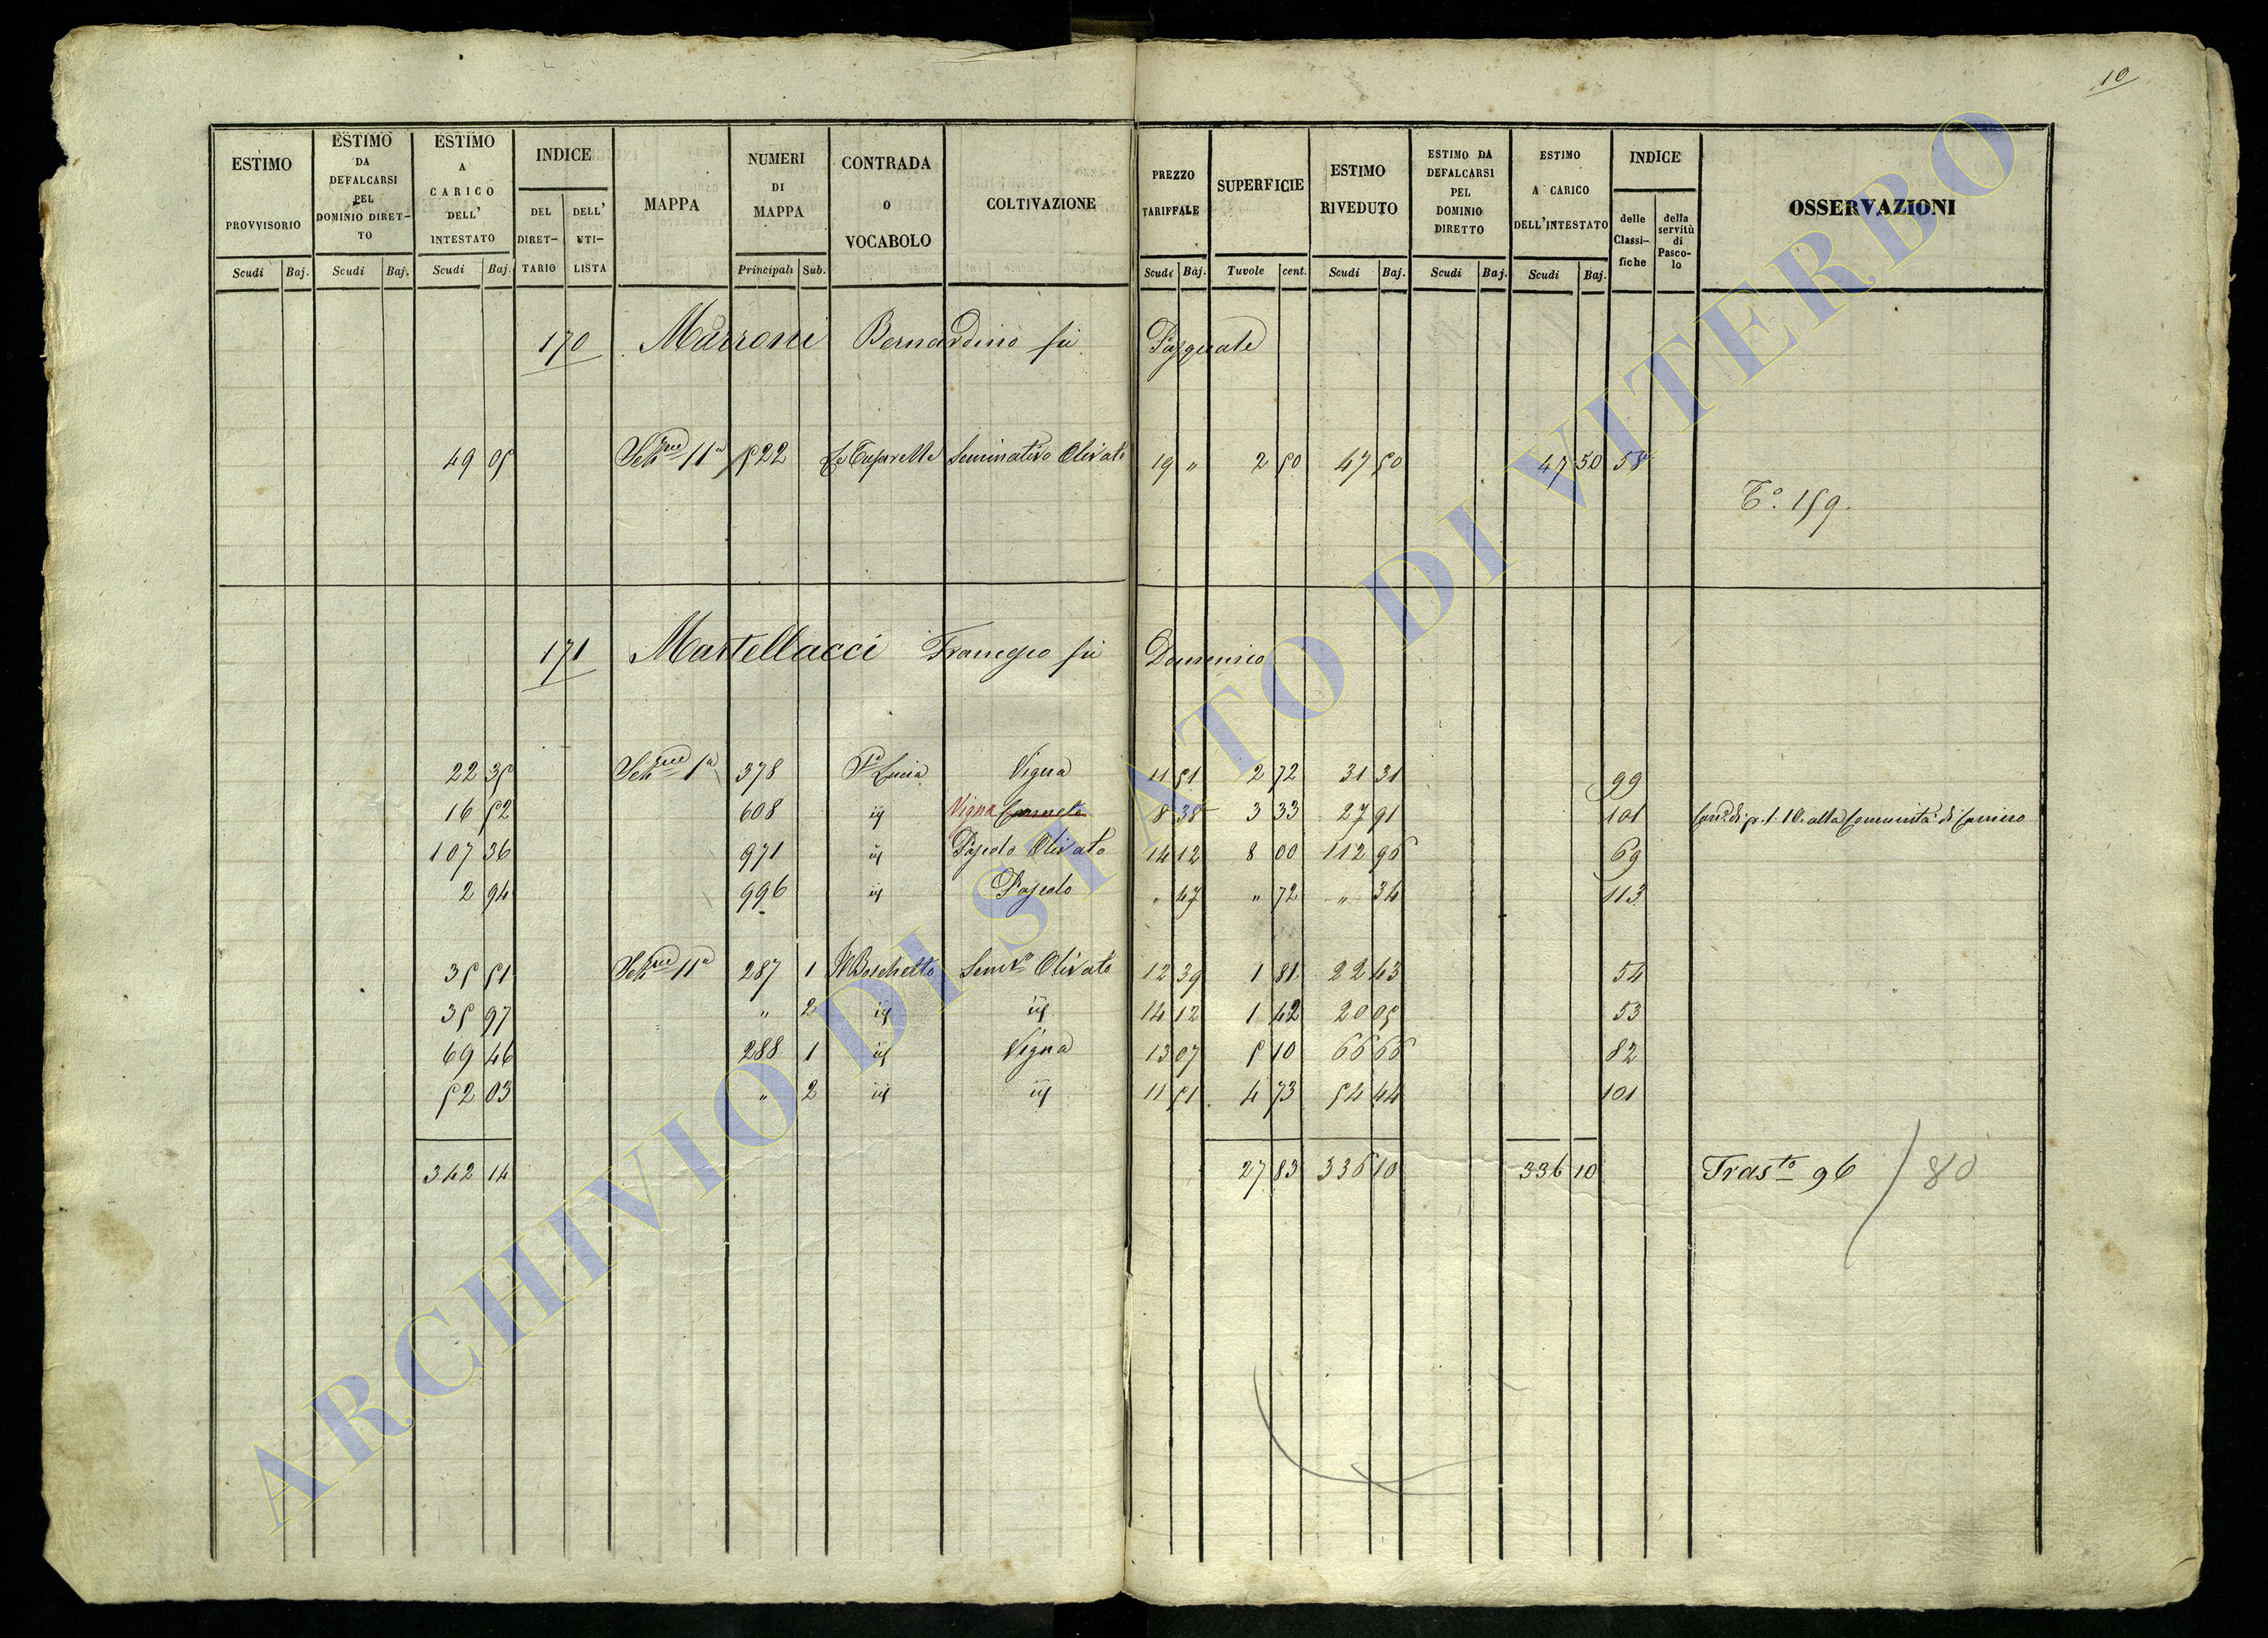 10
ESTIMO PROVVISORIO Scudi Baj.
ESTIMO DA DEFALCARSI PEL DOMINIO DIRET- TO Scudi Baj.
ESTIMO A CARICO DELL' INTESTATO Scudi Baj.
INDICE DEL DIRET- TARIO DELL' UTI- LISTA
MAPPA
NUMERI DI MAPPA Principali Sub.
CONTRADA o VOCABOLO
COLTIVAZIONE
PREZZO TARIFFALE Scudi Baj.
SUPERFICIE Tuvole cent.
ESTIMO RIVEDUTO Scudi Baj.
ESTIMO DA DEFALCARSI PEL DOMINIO DIRETTO Scudi Baj.
ESTIMO A CARICO DELL'INTESTATO Scudi Baj.
INDICE delle Classi- fiche della servitù di Pasco- lo
OSSERVAZIONI
170 Marroni Bernardino fu Pasquale
49 05 Sezne 11a 522 Seminativo Olivato 19 " 2 50 47 50 47 50 58
To. 159.
171 Martellacci Francesco fu Domenico
22 35 Sezne 1a 378 Sta Lucia Vigna 11 51 2 72 31 31 99
16 52 608 iy Vigna Canneto 8 38 3 33 27 91 101 alla Comunità di Canino
107 36 971 iy Pascolo Olivato 14 12 8 00 112 96 69
2 94 996 iy Pascolo " 47 " 72 " 34 113
35 51 Sezne 11a 287 1 Il Boschetto Semvo Olivato 12 39 1 81 22 43 54
35 97 " 2 iy iy 14 12 1 42 20 05 53
69 46 288 1 iy Vigna 13 07 5 10 66 66 82
52 03 " 2 iy iy 11 51 4 73 54 44 101
342 14 27 83 336 10 336 10 Trasto 96 / 80
ARCHIVIO DI STATO DI VITERBO